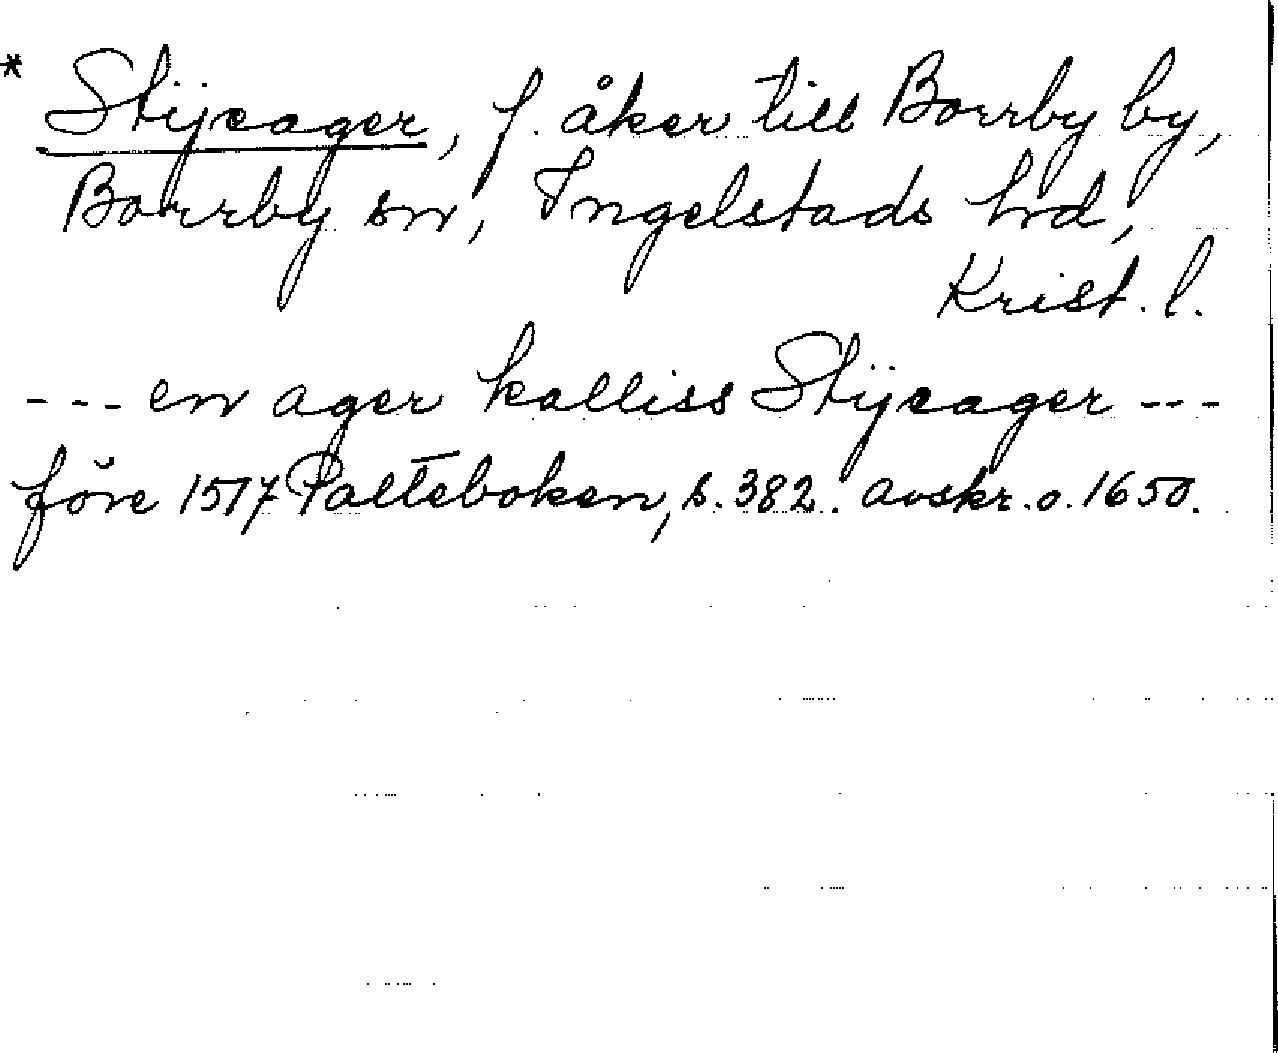 * Stijeager, f. åker till Borrby by,
Borrby sn, Ingelstads hrd,
Krist. l.
--- en ager kalliss Stijeager ---
före 1517 Palteboken, s. 382. avskr. o. 1650.